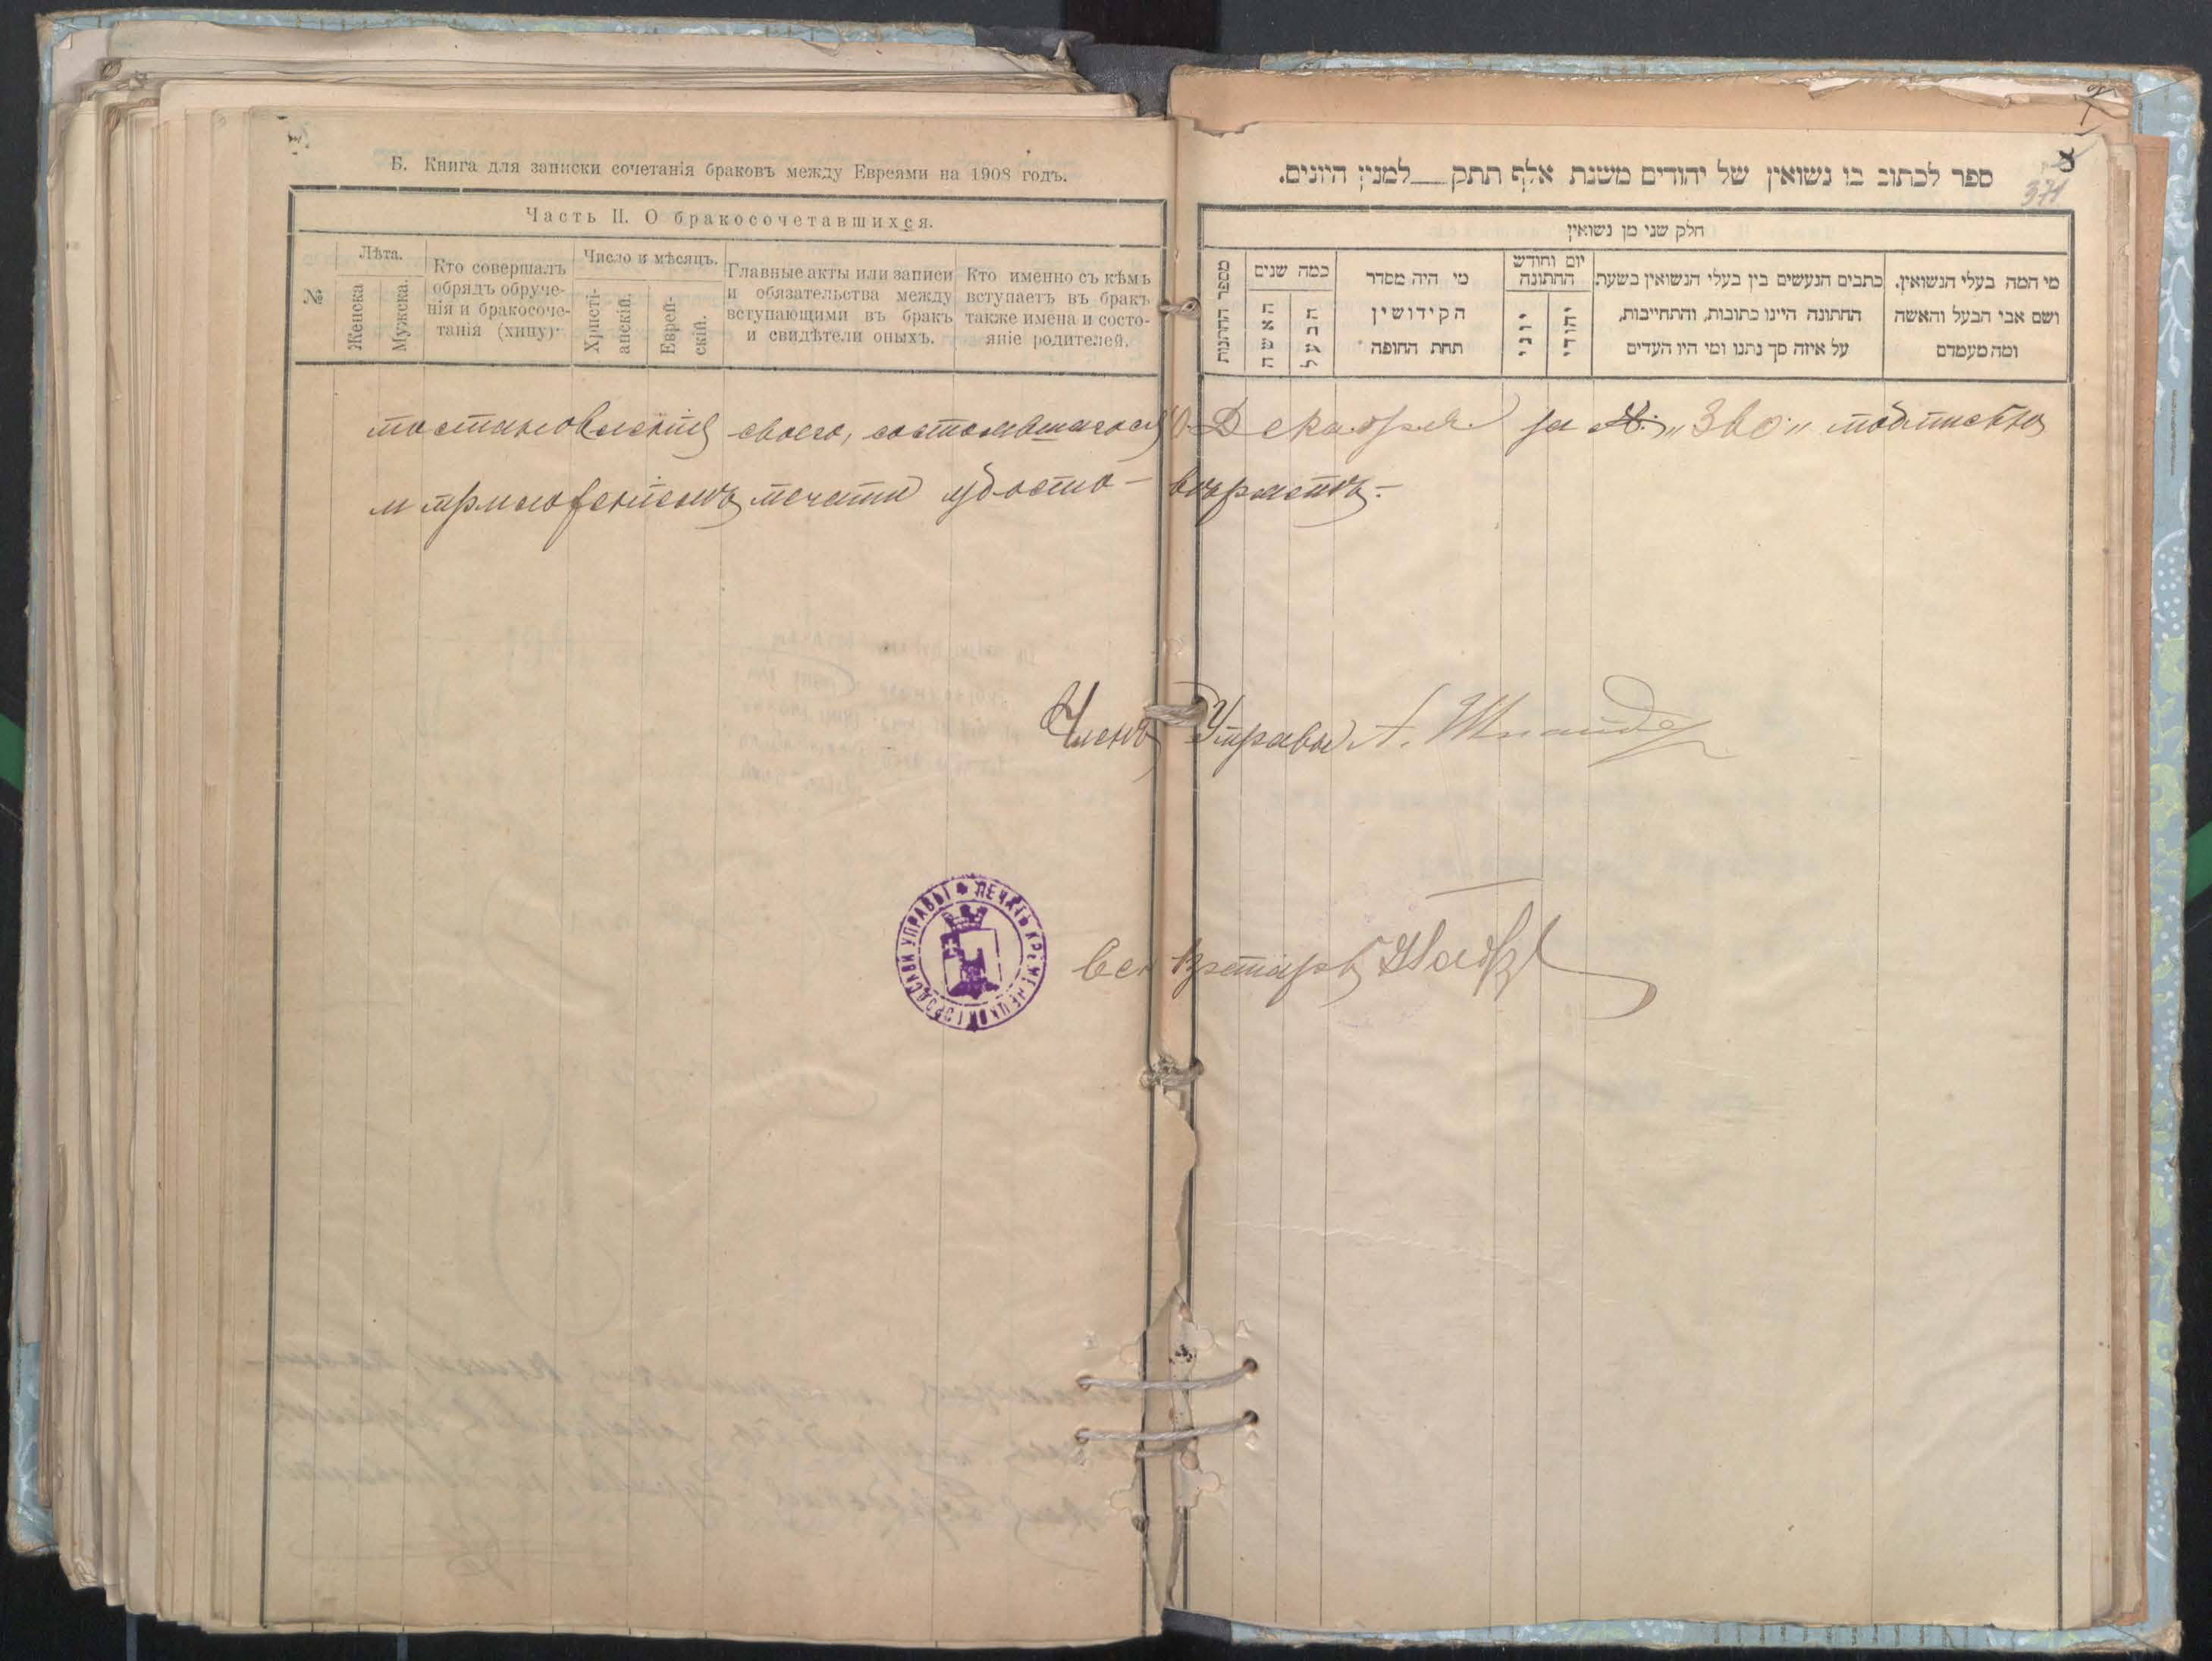 Б. Книга для записки сочетанія браковъ между Евреями на 1908 годъ.
Часть II. О бракосочетавшихся.
№
Лѣта.
Женска
Мужска.
Кто совершалъ
обрядъ обруче-
нія и бракосоче-
танія (хипу)
Число и мѣсяцъ.
Христі-
анскій.
Еврей-
скій.
Главные акты или записи
и обязательства между
вступающими въ бракъ
и свидѣтели оныхъ.
Кто именно съ кѣмъ
вступаетъ въ бракъ
также имена и состо-
яніе родителей.
ספר לכתוב בו נשואין של יהודים משנת אלף תתק למנין היונים.
371
חלק שני מן נשואין
מספר החתונות
כמה שנים
האשה
הבעל
מי היה מסדר
הקידושין
תחת החופה
יום וחודש
החתונה
יוני
יהודי
כתבים הנעשים בין בעלי הנשואין בשעת
החתונה היינו כתובות, והתחייבות,
על איזה סך נתנו ומי היו העדים
מי המה בעלי הנשואין.
ושם אבי הבעל והאשה
ומה מעמדם
постановленія своего, состоявшагося Декабря за № подписью
и приложеніемъ печати удосто-вѣряетъ.-
Членъ Управы А.
Секретарь
ПЕЧАТЬ КРЕМЕНЕЦКОЙ ГОРОДСКОЙ УПРАВЫ